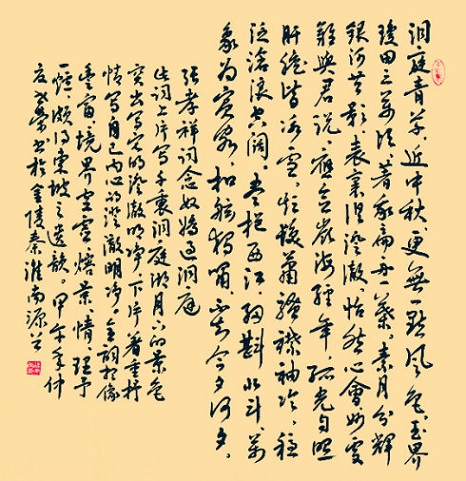 洞庭青草,近中秋,更無一點風色。玉界
瓊田三萬頃,著我扁舟一葉。素月分輝
銀河共影,表裏俱澄澈。怡然心會,妙處
難與君說。應念嶺海經年,孤光自照
肝膽皆冰雪。短髮蕭騷襟袖冷,穩
泛滄浪空闊。盡挹西江,細斟北斗,萬
象為賓客。扣舷獨嘯,不知今夕何夕。
張孝祥詞念奴嬌過洞庭
此詞上片寫千裏洞庭湖月下的景色
突出寫它的澄澈明净,下片着重抒
情寫自己內心的澄澈明净。全詞想像
豐富境界空靈熔景、情、理于
一爐,頗得東坡之遺韻。甲午年仲
榮書於金陵秦淮南源